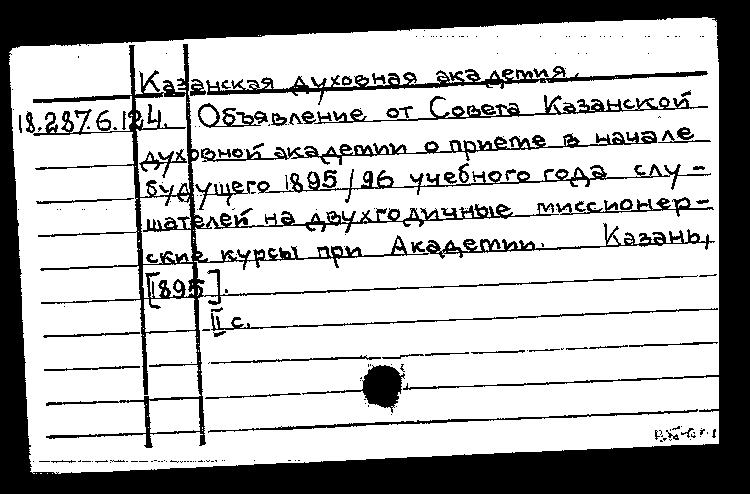 Казанская духовная академия.
18.287.6.124. Объявление от Совета Казанской
духовной академии о приеме в начале
будущего 1895/96 учебного года слу-
шателей на двухгодичные миссионер-
ские курсы при Академии. Казань,
[1895].
II с.